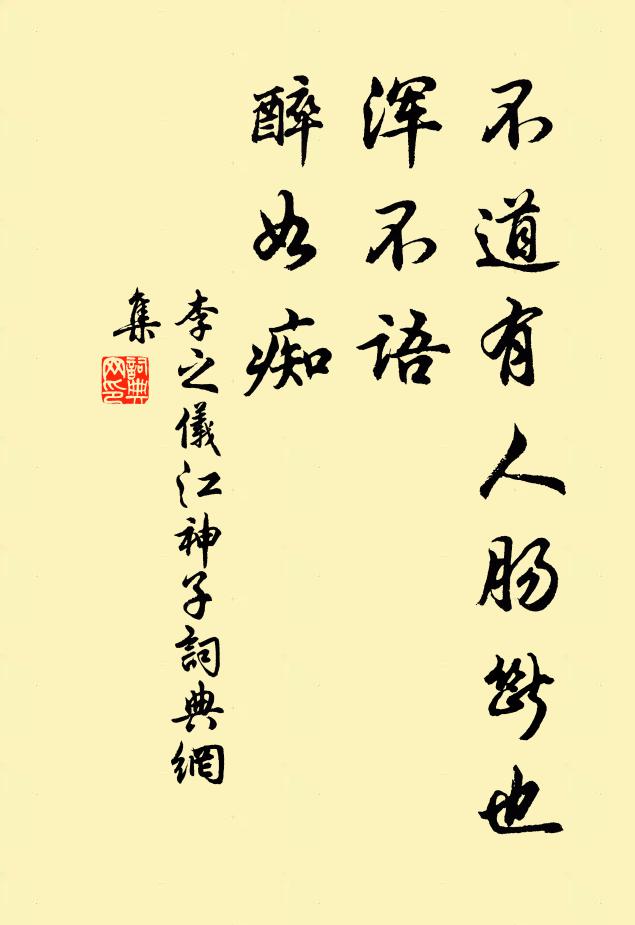 不道有人肠断也
浑不语
醉如痴
李之儀江神子詞典網
集
詞典網印